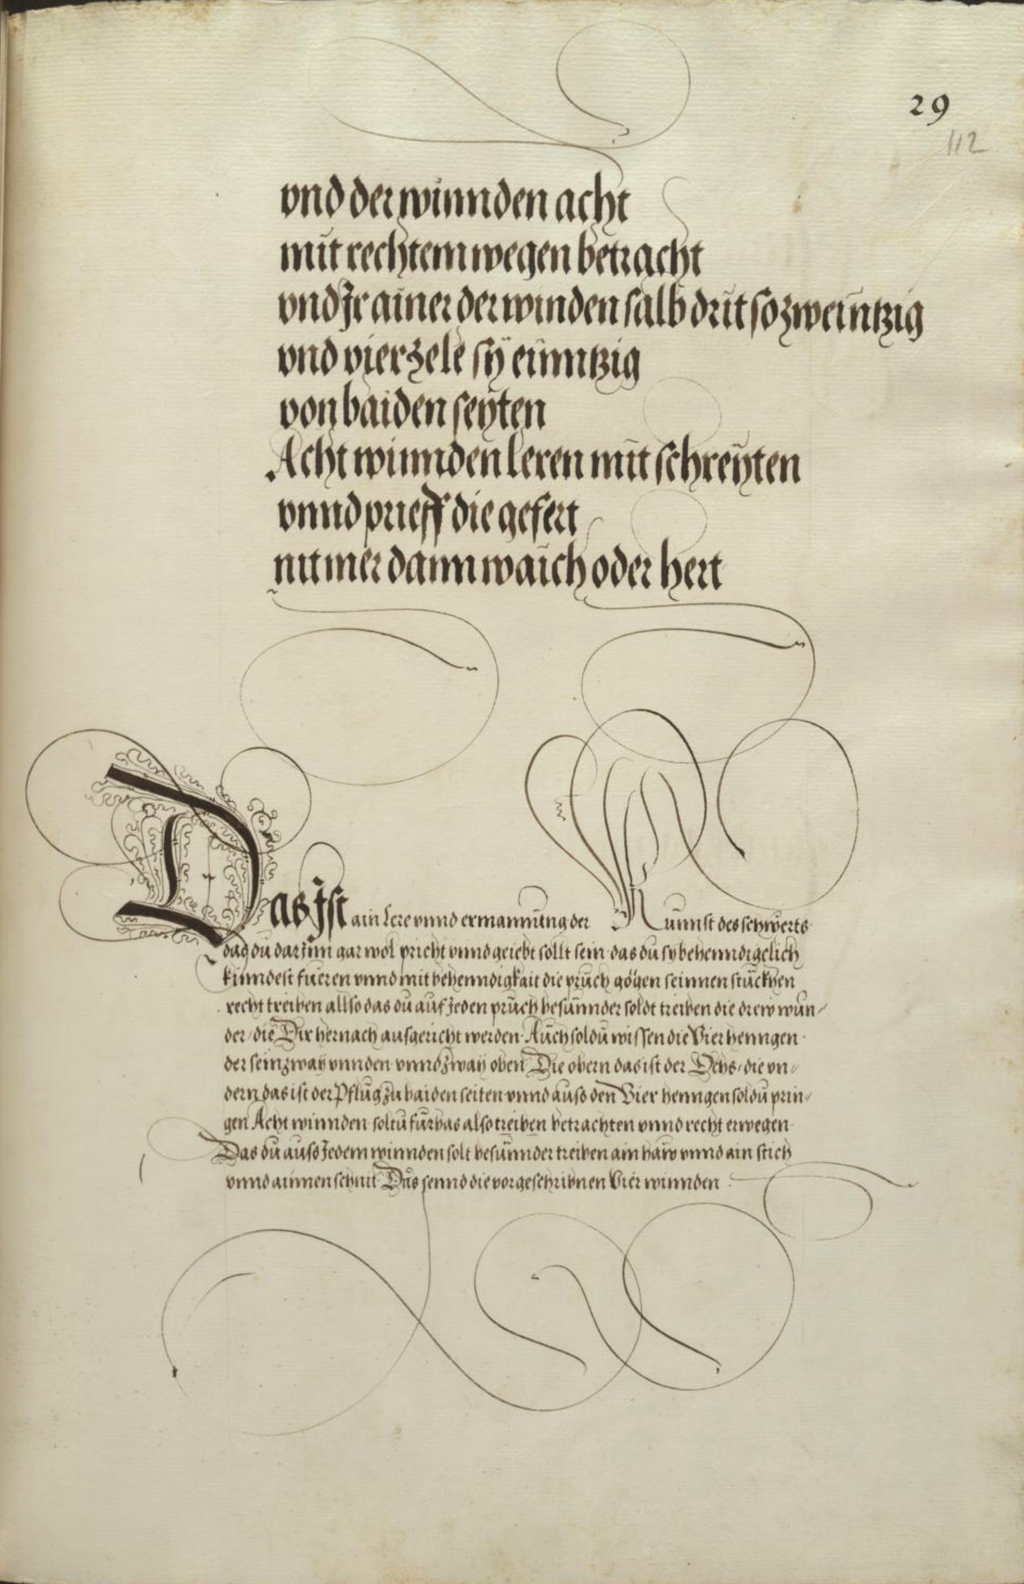 29
112
vnd der winnden acht
mit rechtem wegen betracht
vnd Jr ainer der winden salb drit so zweintzig
vnd vier zele sy einntzig
von baiden seyten
Acht winnden leren mit schreyten
vnnd prieff die gefert
nit mer dann waich oder hert
Das Jst ain lere vnnd ermannung der Kunnst des schwerts
das du darJnn gar wol pricht vnnd geiebt sollt sein das du sy behenndigelich
kinndest fueren vnnd mit behenndigkait die pruch gögen seinnen stuckhen
recht treiben allso das du auf Jeden pruch besunnder soldt treiben die drew wun-
der/ die Dir hernach ausgericht werden Auch soldu wissen die Vier henngen
der sein zway vnnden vnnd zway oben Die obern das ist der Ochs/ die vn-
dern das ist der Pflug zu baiden seiten vnnd auss den Vier henngen soldu prin-
gen Acht winnden soltu furbas also treiben betrachten vnnd recht erwegen
Das du auss Jedem winnden solt besunnder treiben ain haw vnnd ain stich
vnnd ainnen schnit Das sennd die vorgeschribnen Vier winnden